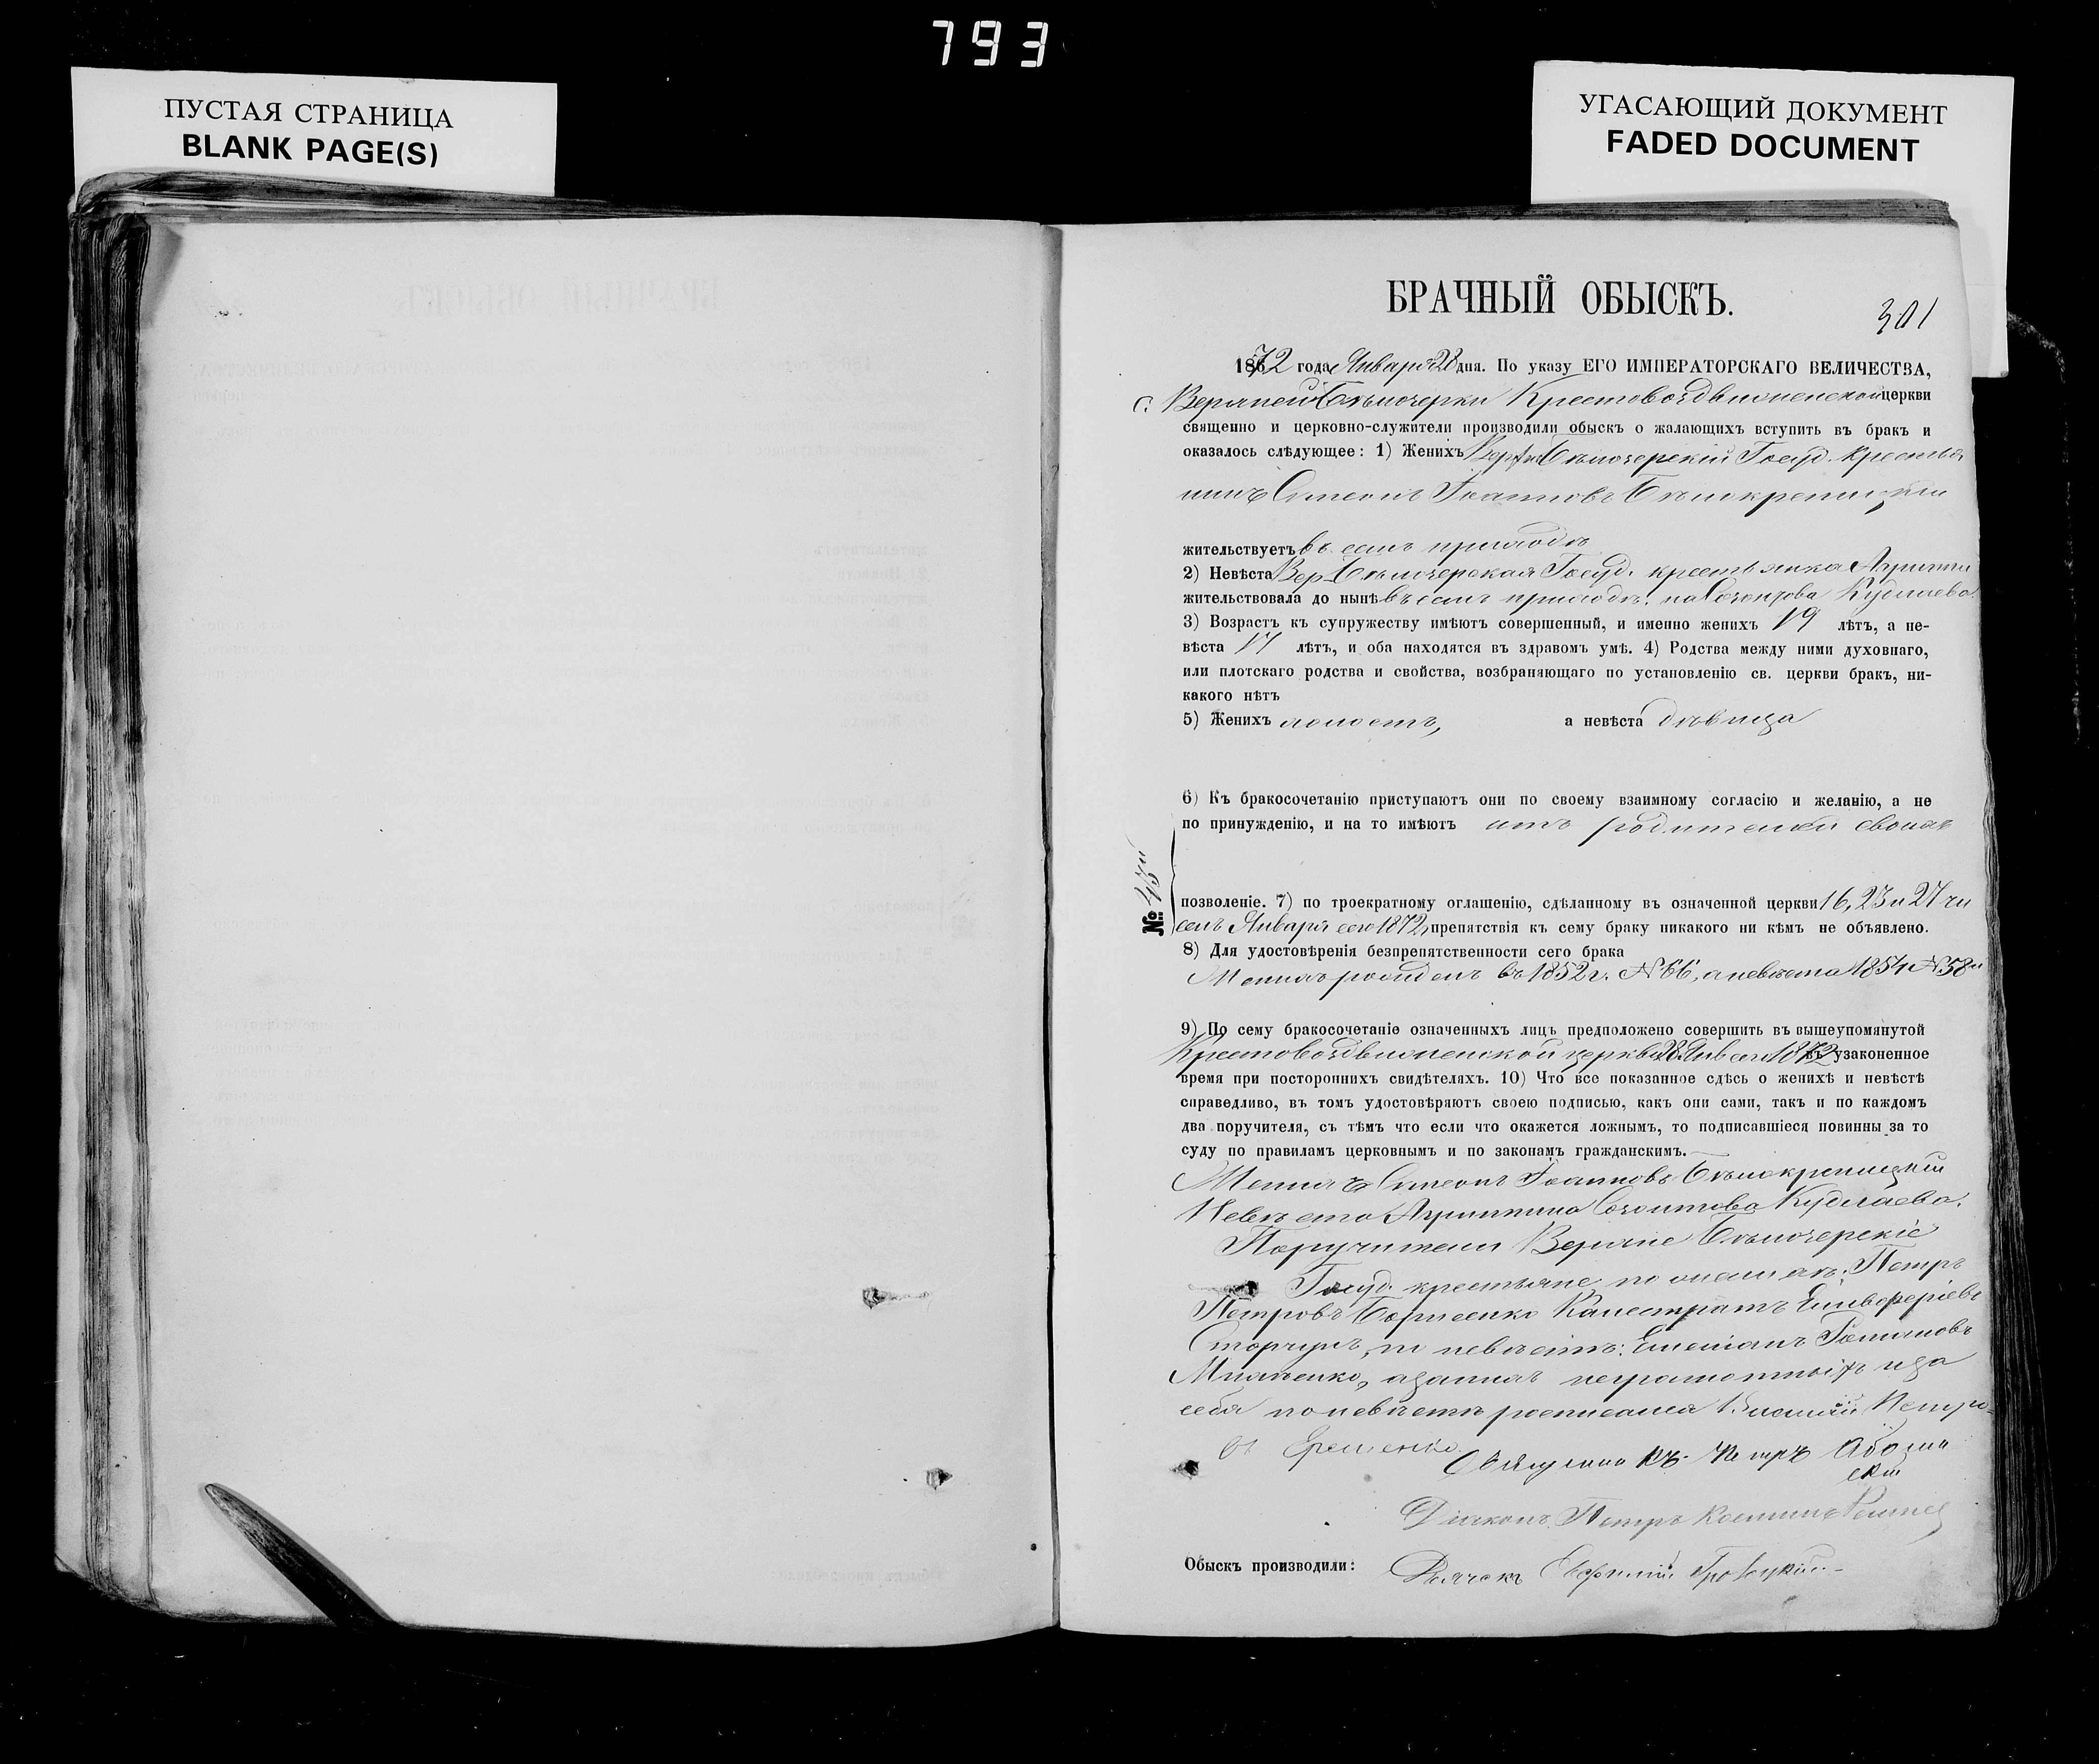 793
ПУСТАЯ СТРАНИЦА
BLANK PAGE(S)
УГАСАЮЩИЙ ДОКУМЕНТ
FADED DOCUMENT
БРАЧНЫЙ ОБЫСКЪ.
301
1872 года Января 28 дня. По указу ЕГО ИМПЕРАТОРСКАГО ВЕЛИЧЕСТВА,
с. Верхней Бѣлозерки Крестовоздвиженской церкви
священно и церковно-служители производили обыскъ о жалающихъ вступить въ бракъ и
оказалось слѣдующее: 1) Женихъ Верхне Бѣлозерскій Госуд. крестья
нинъ Симеонъ Іоанновъ Бѣлокреницкій
жительствуетъ въ семъ приходѣ
2) Невѣста Вер. Бѣлозерская Госуд. крестьянка Агриппи
жительствовала до нынѣ въ семъ приходѣ. на Созонтова Кудлаева.
3) Возрастъ къ супружеству имѣютъ совершенный, и именно женихъ 19 лѣтъ, а не-
вѣста 17 лѣтъ, и оба находятся въ здравомъ умѣ. 4) Родства между ними духовнаго,
или плотскаго родства и свойства, возбраняющаго по установленію св. церкви бракъ, ни-
какого нѣтъ
5) Женихъ холостъ, а невѣста дѣвица
6) Къ бракосочетанію приступаютъ они по своему взаимному согласію и желанію, а не
по принужденію, и на то имѣютъ отъ родителей своихъ
№
позволеніе. 7) по троекратному оглашенію, сдѣланному въ означенной церкви 16, 23 и 27 чи
селъ Января сего 1872, препятствія къ сему браку никакого ни кѣмъ не объявлено.
8) Для удостовѣренія безпрепятственности сего брака
Женихъ рожденъ въ 1852 г. № 66, а невѣста 1854 № 58й
9) По сему бракосочетаніе означенныхъ лицъ предположено совершить въ вышеупомянутой
Крестовоздвиженской церкви 28 Янв 1872 въ узаконенное
время при постороннихъ свидѣтеляхъ. 10) Что все показанное сдѣсь о женихѣ и невѣстѣ
справедливо, въ томъ удостовѣряютъ своею подписью, какъ они сами, такъ и по каждомъ
два поручителя, съ тѣмъ что если что окажется ложнымъ, то подписавшіеся повинны за то
суду по правиламъ церковнымъ и по законамъ гражданскимъ.
Женихъ Симеонъ Іоанновъ Бѣлокреницкій
Невѣста Агриппина Созонтова Кудлаева.
Поручители Верхне Бѣлозерскіе
Госуд. крестьяне по женихѣ: Петръ
Петровъ Борисенко Калистратъ Елевферіевъ
Сторчукъ, по невѣстѣ: Емеліанъ
неграмотныхъ и за
себя по невѣстѣ росписался Петро-
въ Еременко
Священникъ Петръ
скій
Діаконъ Петръ
Обыскъ производили: Дьячекъ Евфимій